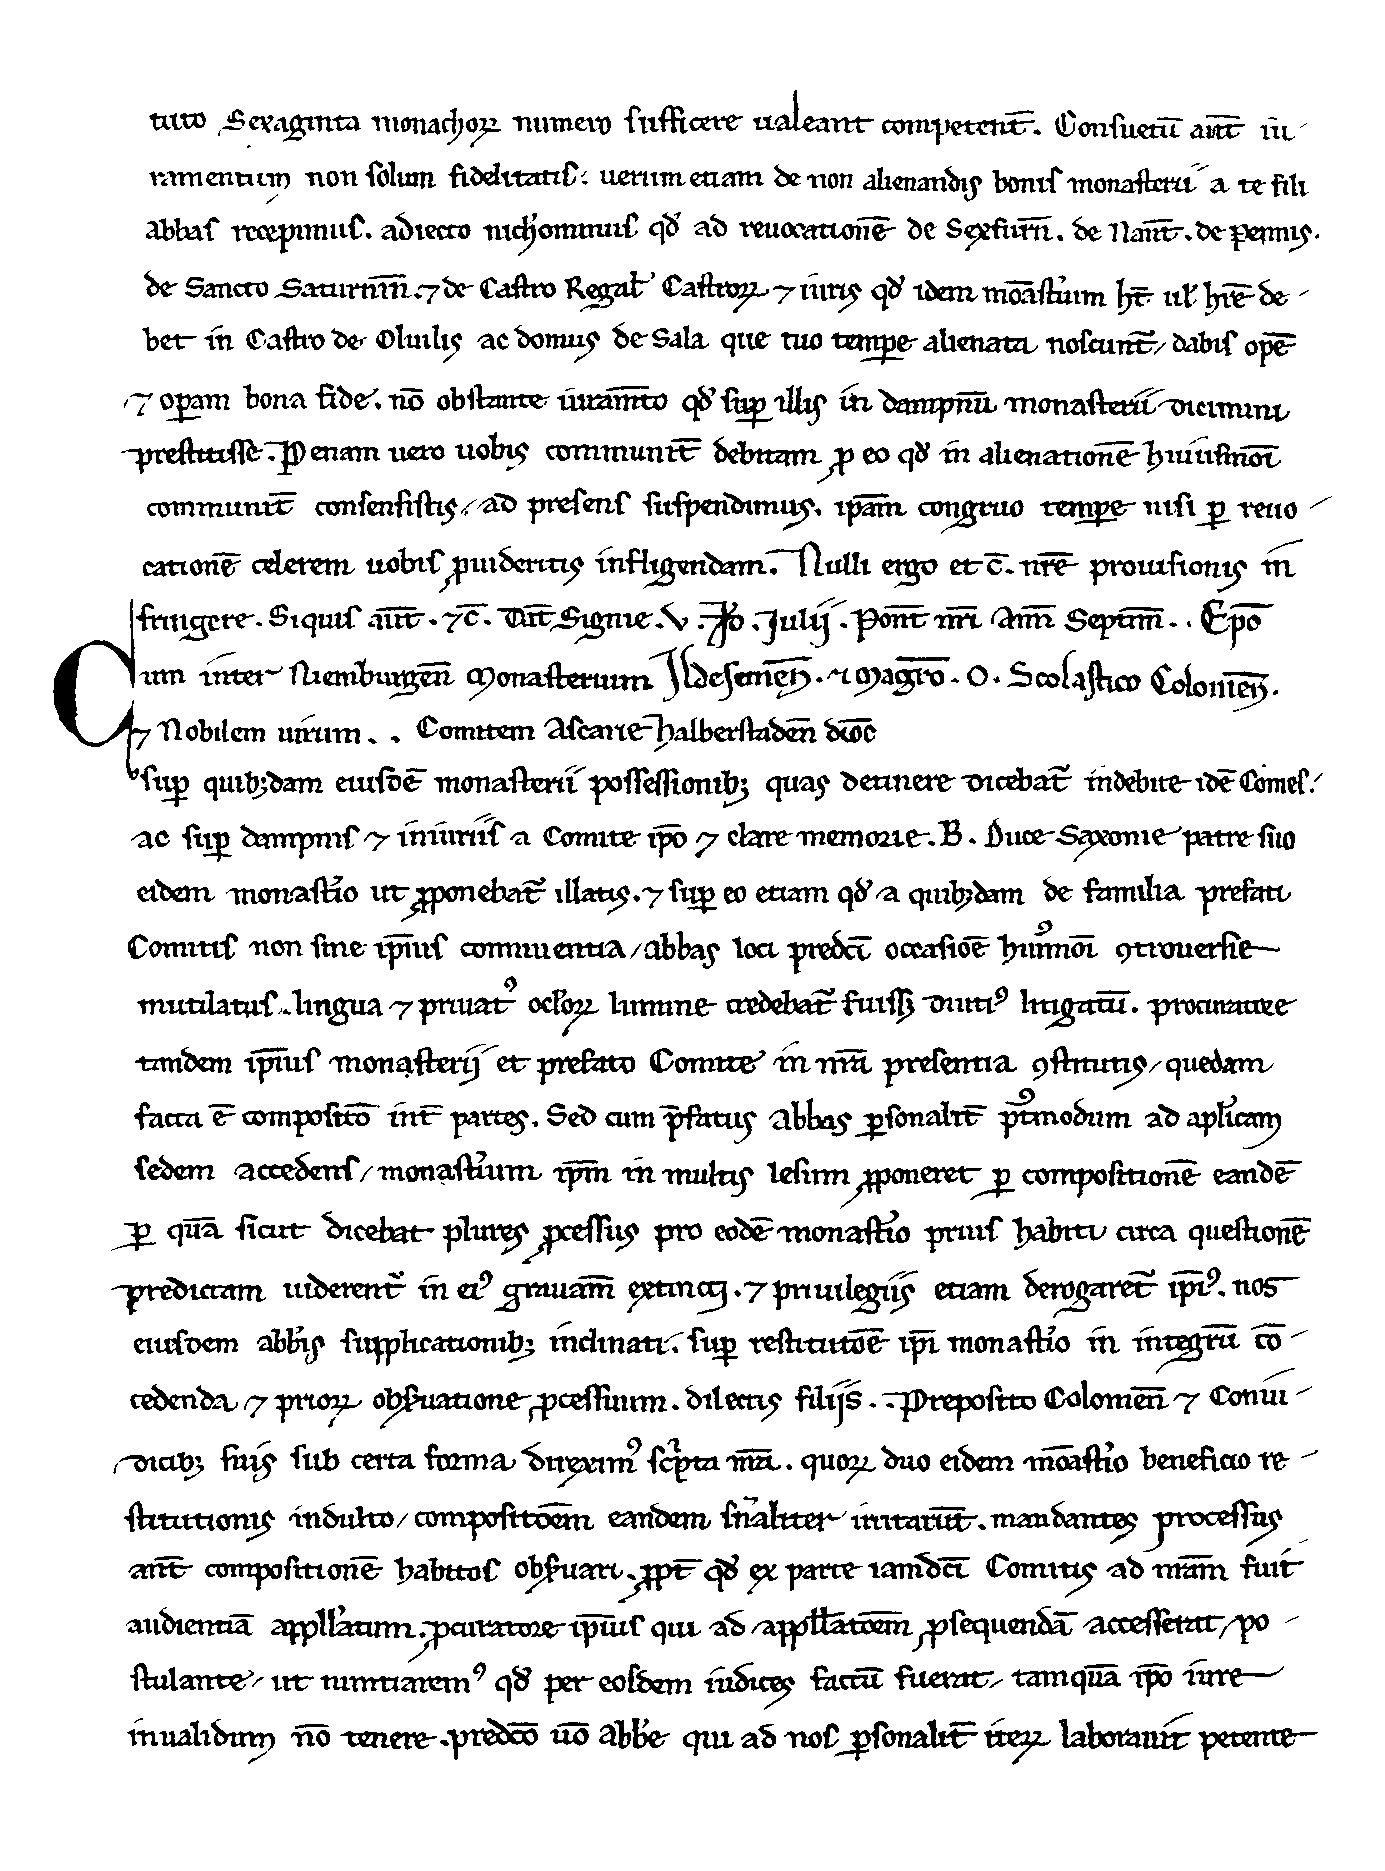 tuto Sexaginta monachoꝝ numero sufficere ualeant competent̄. Consuetū aut̄ iu-
ramentum non solum fidelitatis: uerum etiam de non alienandis bonis monasterii a te fili
Abbas recepimus. adiecto nichomínus qđ ad reuocationē de Sexfurn̄. de Nant̄. de Pennis.
de Sancto Saturnin̄. ⁊ de Castro Regal̓ Castroꝝ ⁊ iuris qđ idem mōast̓ium ht̄ ul̓ hr̄e de-
bet in Castro de Oluilis ac domus de Sala que tuo tempꝑe alienata noscunt̄/ dabis opē
⁊ oꝑam bona fide. nō obstante iuram̄to qđ suꝑ illis in dampnū monasterii diciminī
prestitisse. Penam uero uobis communit̄ debitam ꝓ eo qđ in alienationē huiusmōi
communit̄ consensistis/ ad presens suspendimus. ip̄am congruo tempꝑe nisi ꝑ reuo-
cationē celerem uobis ꝓuideritis infligendam. Nulli ergo et c̄. nr̄e prouisionis in
fringere. Siquis aut̄. ⁊c̄. Dat̄ Signie. V. Id̄o. Julij. Pont̄ nr̄i Ann̄ Septim̄. . Ep̄o
Cum inter Niemburgen̄ Monasterium Ildesemen̄. ⁊ Magr̄o. O. Scolastico Colonien̄.
⁊ Nobilem uirum. . Comitem Ascarie halberstaden̄ dioc̄
suꝑ quibꝫdam eiusdē monasterii possessionibꝫ quas detinere dicebat̄ indebite idē Comes/
ac suꝑ dampnis ⁊ iniuriis a Comite ip̄o ⁊ clare memorie. B. Duce Saxonie patre suo
eidem monast̓io ut ꝓponebat̄ illatis. ⁊ suꝑ eo etiam qđ a quibꝫdam de familia prefati
Comitis non sine ip̄ius conniuentia/ abbas loci predc̄i occasiōe hui᷒mōi ꝯtrouersie
mutilatus. lingua ⁊ priuat᷒ ocl̓oꝝ lumine credebat̄ fuissꝫ diuti᷒ litigatū. procuratore
tandem ip̄ius monasterij et prefato Comite in nr̄a presentia ꝯstitutis/ quedam
facta ē compositō int̄ partes. Sed cum p̄fatus Abbas ꝑsonalit̄ p᷒tmodum ad apl̓icam
sedem accedens/ monast̓ium ip̄m in multis lesum ꝓponeret ꝑ compositionē eandē
ꝑ quā sicut dicebat plures ꝓcessus pro eodē monast̓io prius habiti circa questionē
predictam uiderent̄ in ei᷒ grauam̄ extincti. ⁊ priuilegiis etiam derogaret̄ ip̄i᷒. nos
eiusdem abb̓is supplicationibꝫ inclinati. suꝑ restitutōe ip̄i monast̓io in integrū cō-
cedenda ⁊ prioꝝ obẜuatione ꝓcessuum. dilectis filijs. . Preposito Colonien̄ ⁊ Coniu-
dicibꝫ suis sub certa forma direxim᷒ sc̓pta nr̄a. quoꝝ duo eidem mōast̓io beneficio re-
stitutionis indulto/ compositōem eandem sn̄aliter irritarūt. mandantes processus
ant̄ compositionē habitos obẜuari. ꝓpt̄ qđ ex parte iamdc̄i Comitis ad nr̄am fuit
audientiā appll̓atum. ꝓcuratore ip̄ius qui ad appll̄atōem ꝓsequendā accesserat/ po-
stulante/ ut nuntiarem᷒ qđ per eosdem iudices factū fuerat/ tamquā ip̄o iure
inualidum nō tenere. predc̄o ūo Abb̓e qui ad nos ꝑsonalit̄ iteꝝ laborauit petente